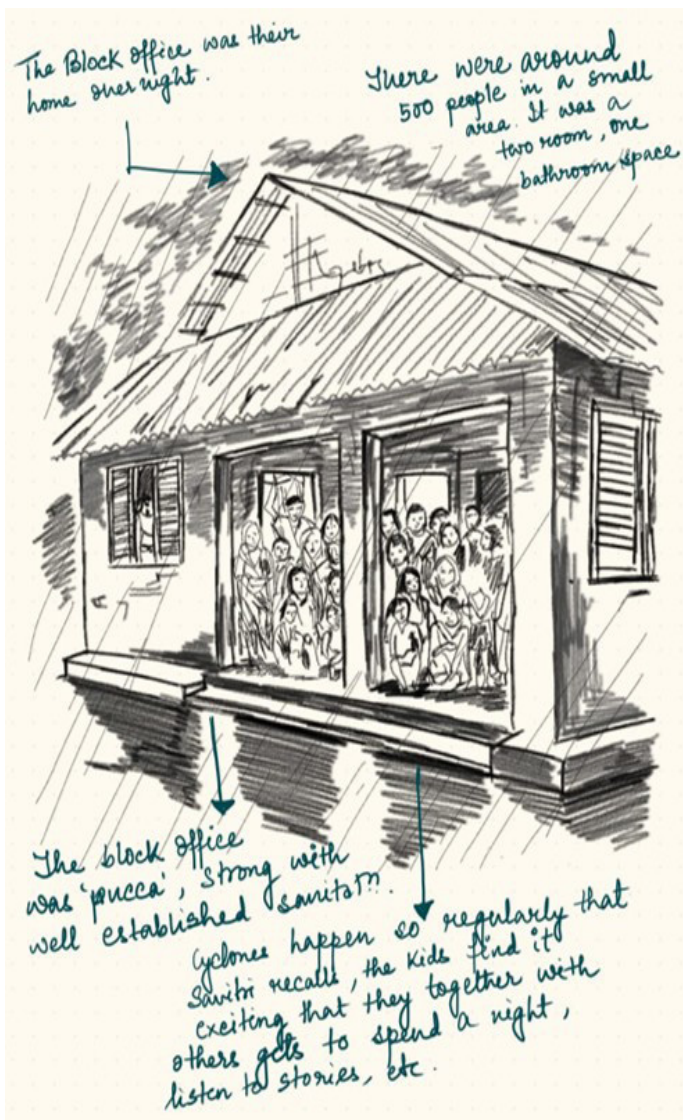 The Block office was their
home over night.
There were around
500 people in a small
area. It was a
two room, one
bathroom space
The block office
was 'pucca', strong with
well established
Cyclones happen so regularly that
Savitri recalls, the kids find it
exciting that they together with
others gets to spend a night,
listen to stories, etc.